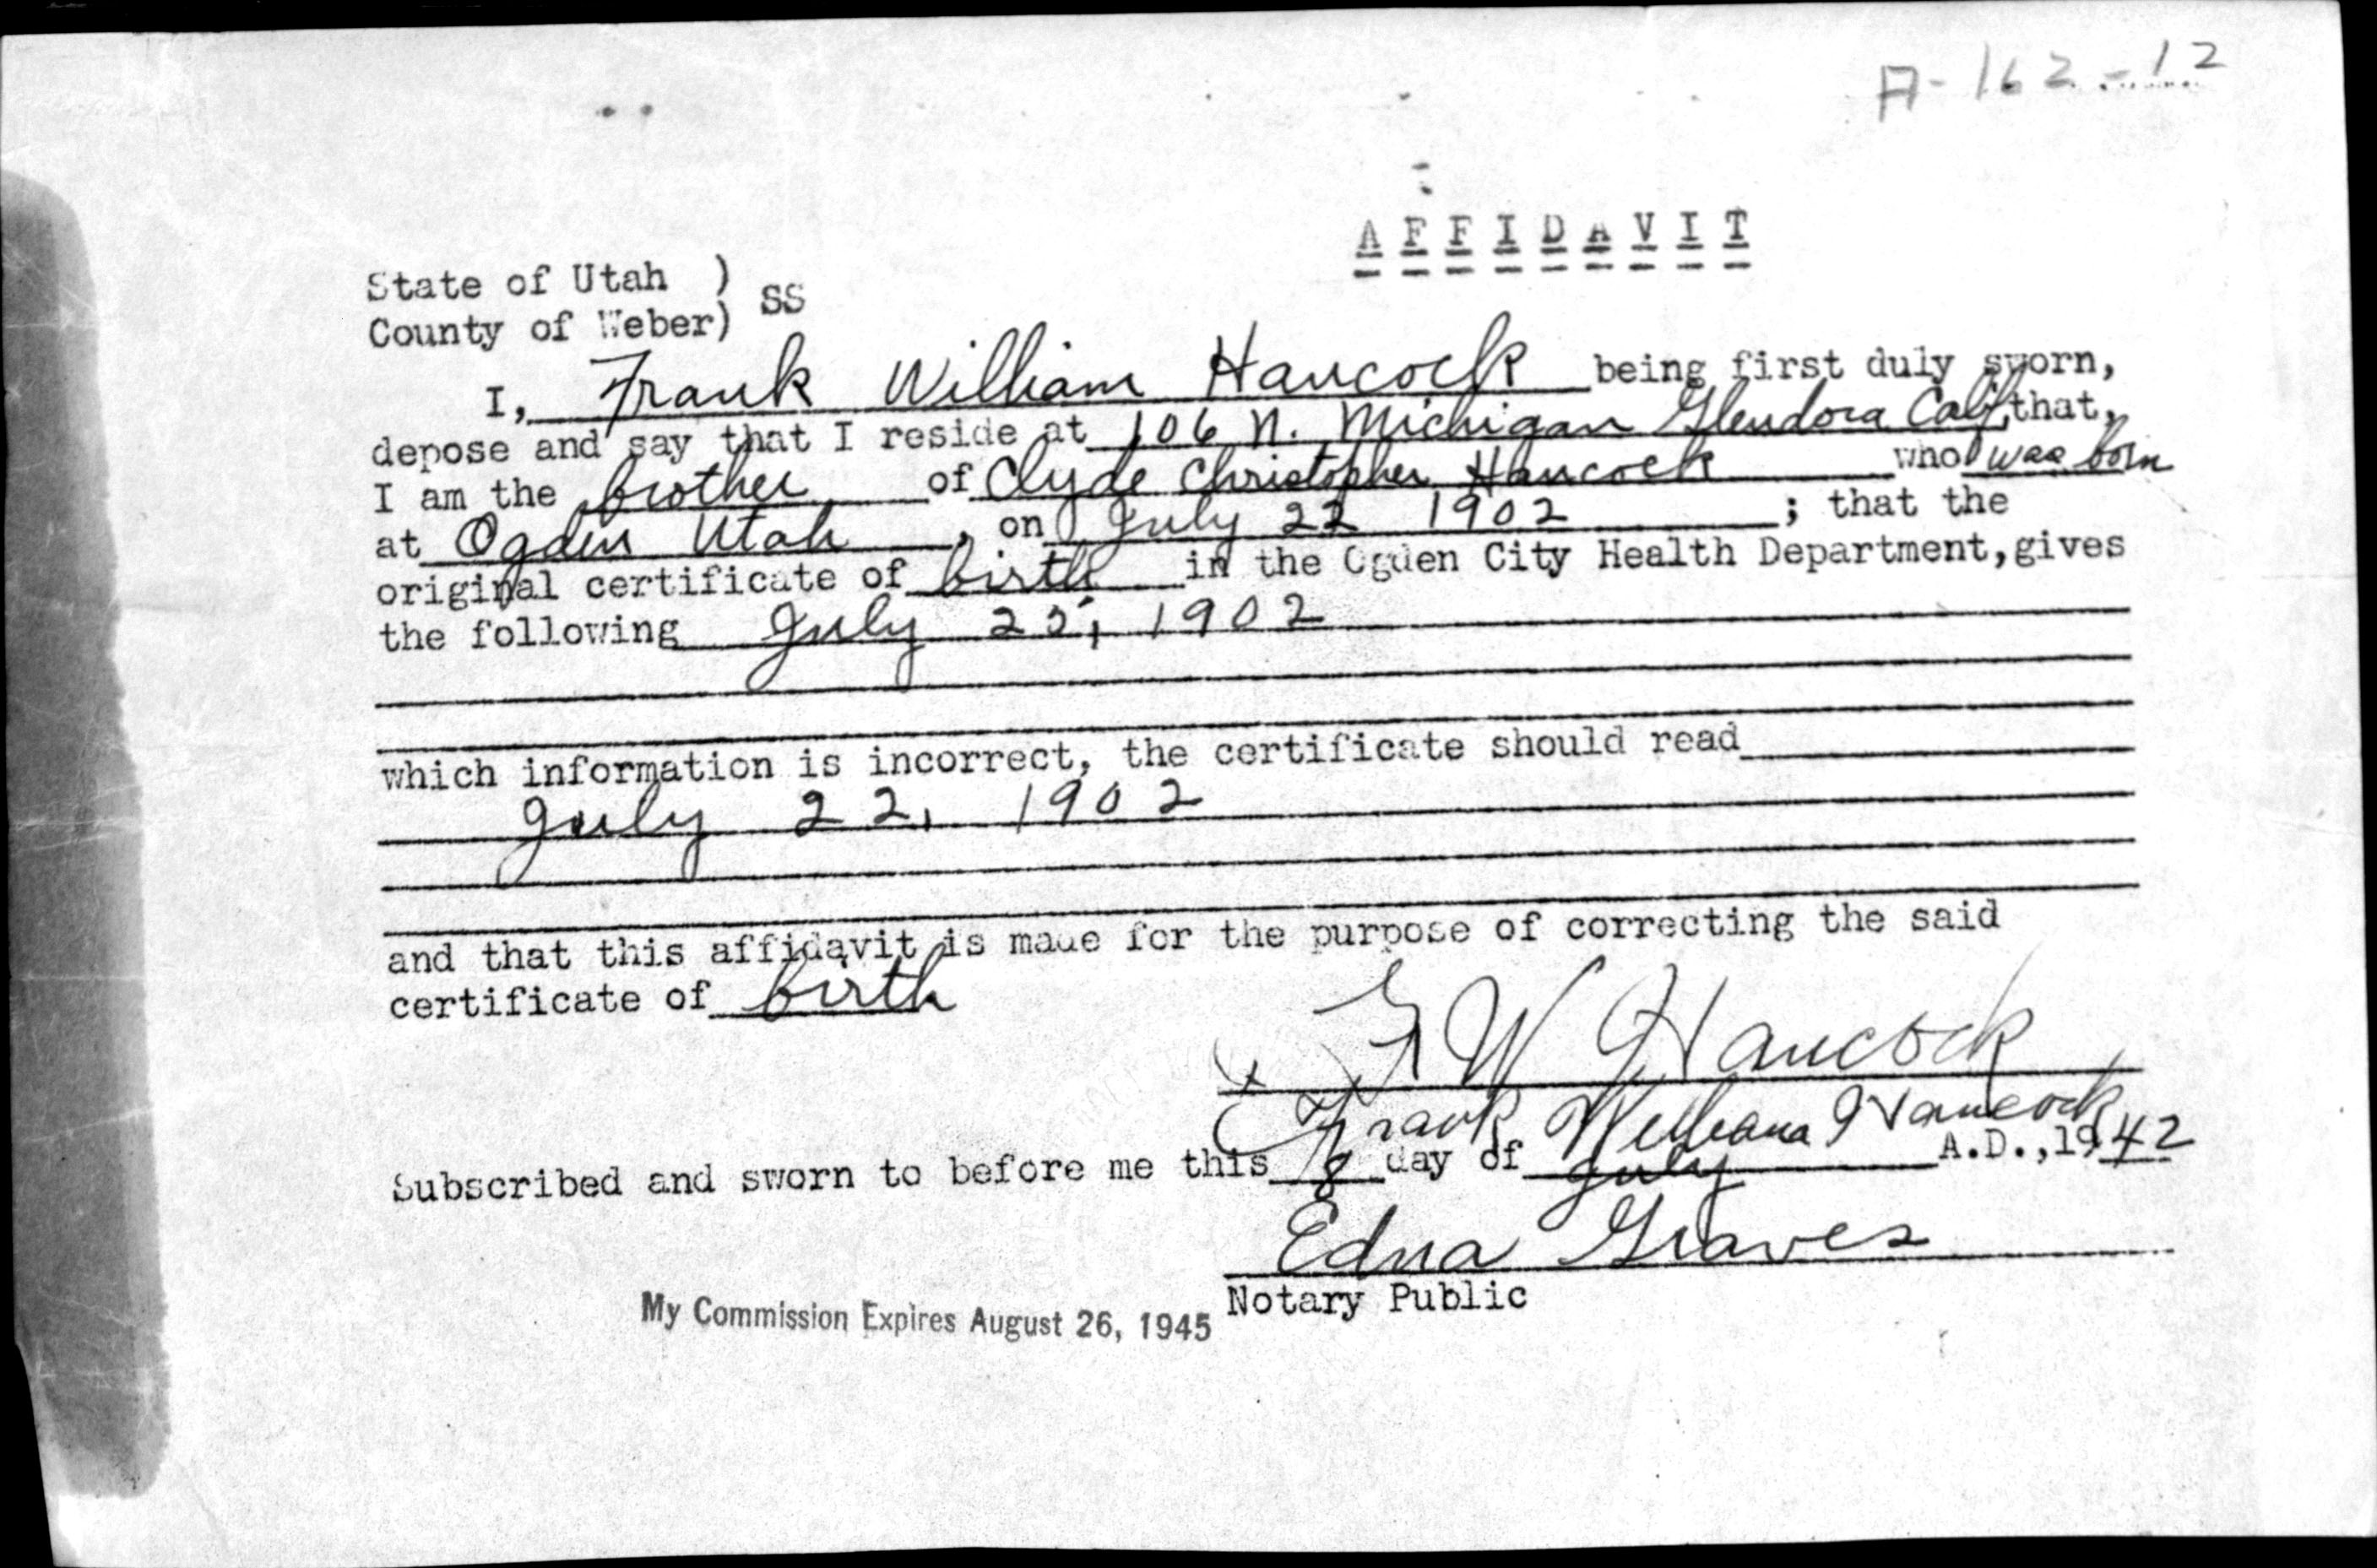 A-162-12
AFFIDAVIT
State of Utah )
County of Weber) SS
I, Frank William Hancock being first duly sworn,
depose and say that I reside at 106 N. Michigan Glendora Calif, that,
I am the brother of Clyde Christopher Hancock who was born
at Ogden Utah , on July 22 1902 ; that the
original certificate of birth in the Ogden City Health Department,gives
the following July 25, 1902
which information is incorrect, the certificate should read
July 22, 1902
and that this affidavit is made for the purpose of correcting the said
certificate of birth
F W Hancock
Frank William Hancock
Subscribed and sworn to before me this 8 day of July A.D.,1942
Edna Graves
Notary Public
My Commission Expires August 26, 1945